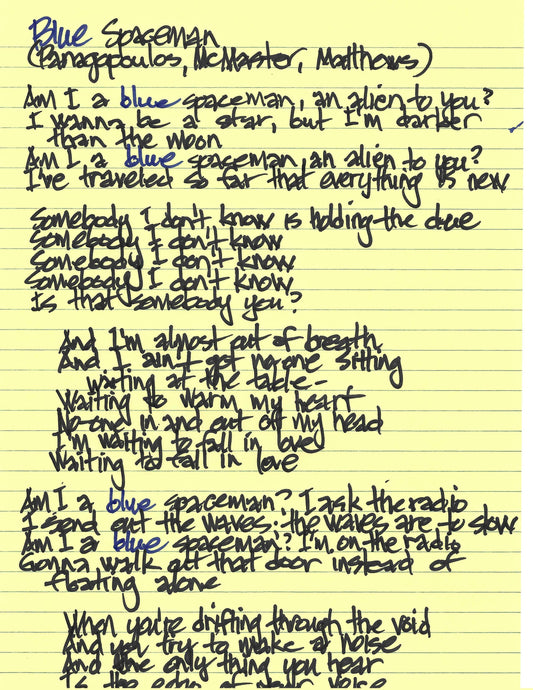 Blue Spaceman
(Panagopoulos, McMaster, Matthews)
Am I a blue spaceman, an alien to you?
I wanna be a star, but I'm darker
than the moon
Am I a blue spaceman an alien to you?
I've traveled so far that everything is new
Somebody I don't know is holding the clue
Somebody I don't know
Somebody I don't know
Somebody I don't know
Is that somebody you?
And I'm almost out of breath
And I ain't got no-one sitting
waiting at the table-
Waiting to warm my heart
No-one in and out of my head
I'm waiting to fall in love
Waiting to fall in love
Am I a blue spaceman? I ask the radio
I send out the waves: the waves are to slow
Am I a blue spaceman? I'm on the radio
Gonna walk out that door instead of
floating alone
When you're drifting through the void
And you try to make a noise
And the only thing you hear
Is the echo of your voice